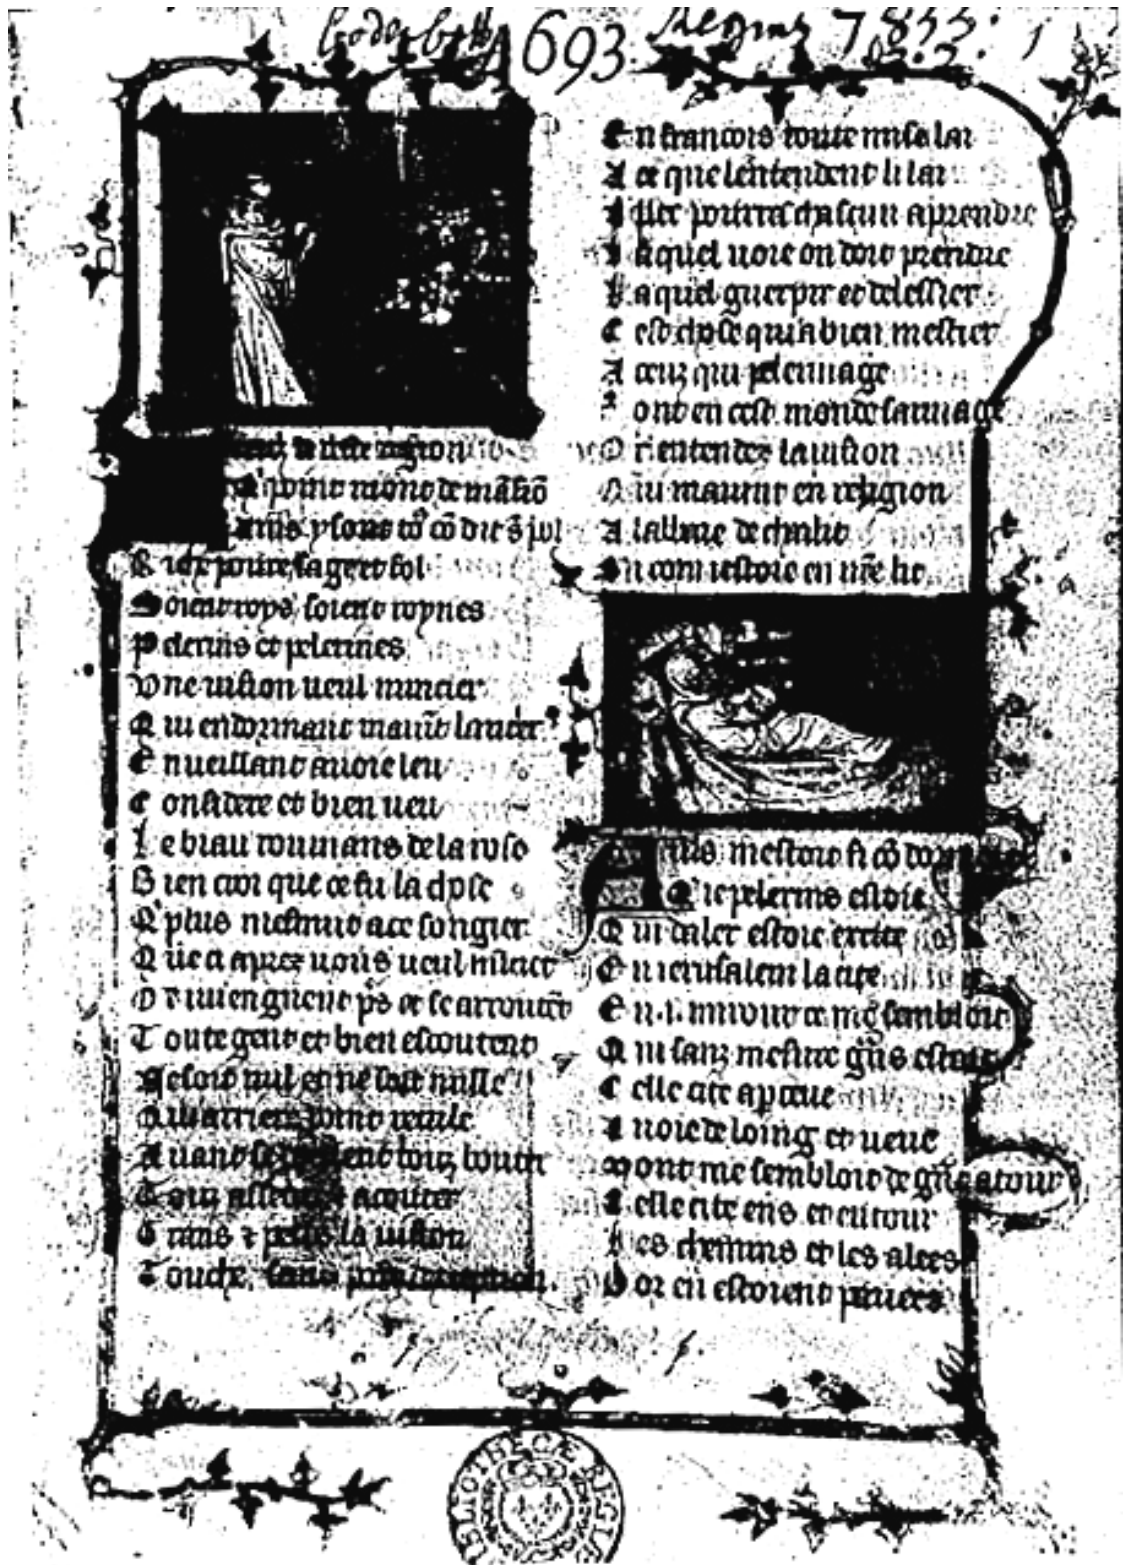 693
Regius 7855:
2.2
1
region
point mont de mãsiõ
y sont tõ cõ dit s̃ pol
Riche poure sage et fol
Soient roys soient roynes
Pelerins et pelerines
Une uision ueul nuncier
Qui en dormant
En ueillant auoie leu
Considere et bien ueu
Le biau roumans de la rose
Bien croi que ce fu la chose
Q̃ plus mesmut a ce songier
Que ci aprez uous ueul
Or uiengnent p̃s et se arroutẽt
Toute gent et bien escoutent
Ne soit nul et ne soit nulle
Qui arriere point recule
Auant se touz bouter
Touz a acouter
Grans & petis la uision
Touche sans
En francois toute mise lai
A ce que lẽntendent li lai
pourra chascun aprendre
La quel uoie on doit prendre
La quel guerpir et delessier
Cest chose qui a bien mestier
A ceuz qui pelerinage
Font en cest monde sauuage
Or entendez la uision
Qui mauint en religion
A labbaie de chalit
Si com iestoie en mr̃e lit
Auis mestoit si cõ
Que pelerins estoie
Qui daler estoie excite
En ierusalem la cite
En .i. mirour ce me sembloit
Qui sanz mesure grãs estoit
Celle cite aperceue
Auoie de loing et ueue
Mont me sembloit de grãt atour
Celle cite ens et entour
Les chemins et les alees
Dor en estoient pauees
BIBLIOTHECÆ REGIÆ